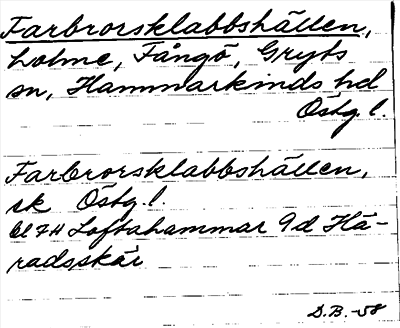 Farbrorsklabbshällen,
holme, Fångö, Gryts
sn, Hammarkinds hd
Östg. l.
Farbrorsklabbshällen,
sk Östg. l.
bl 7H Loftahammar 9d Hä-
radsskär
D.B.-58